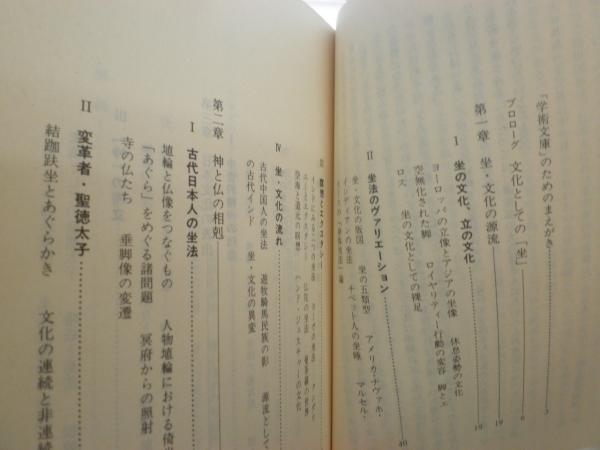 「学術文庫」のためのまえがき………3
プロローグ　文化としての「坐」………6
第一章　坐・文化の源流………19
Ⅰ　坐の文化、立の文化………19
ヨーロッパの立像とアジアの坐像　休息姿勢の文化
空無化された脚　ロイヤリティー行動の変容　脚とエ
ロス　坐の文化としての裸足
Ⅱ　坐法のヴァリエーション………40
坐・文化の版図　坐の五類型　アメリカ・ナヴァホ・
インディアンの坐法　チベット人の坐睡　マルセル・
Ⅲ　瞑想とエクスタシー
Ⅳ　坐・文化の流れ
古代中国人の坐法　遊牧騎馬民族の影　源流として
の古代インド　坐・文化の異変
第二章　神と仏の相剋
Ⅰ　古代日本人の坐法………
埴輪と仏像をつなぐもの　人物埴輪における倚坐
「あぐら」をめぐる諸問題　冥府からの照射
寺の仏たち　垂脚像の変遷
Ⅱ　変革者・聖徳太子………
結跏趺坐とあぐらかき　文化の連続と非連続